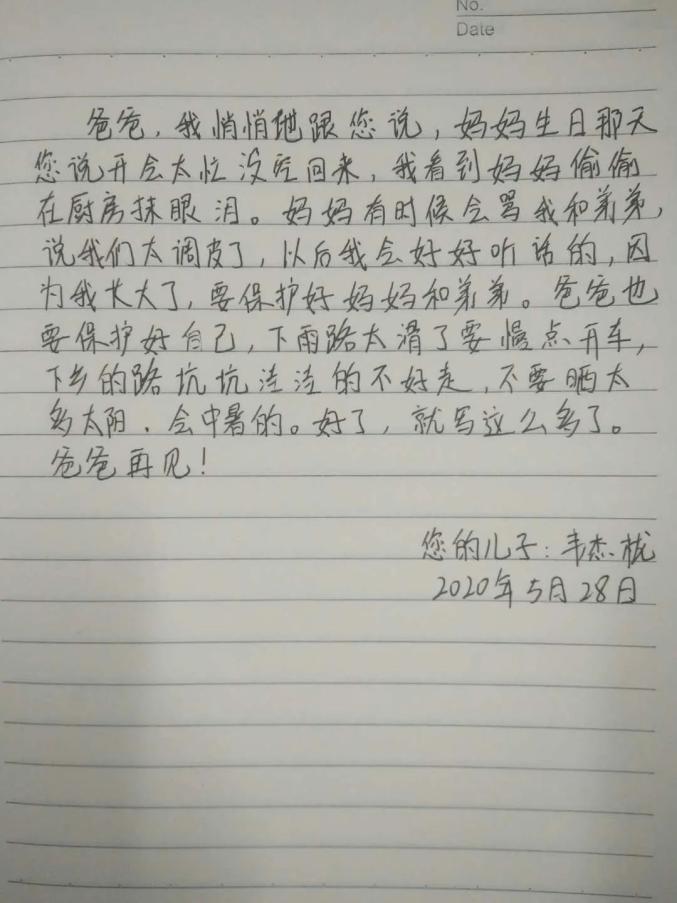 No.
Date
爸爸，我悄悄地跟您说，妈妈生日那天
您说开会太忙没空回来，我看到妈妈偷偷
在厨房抹眼泪。妈妈有时候会骂我和弟弟，
说我们太调皮了，以后我会好好听话的，因
为我长大了，要保护好妈妈和弟弟。爸爸也
要保护好自己，下雨路太滑了要慢点开车，
下乡的路坑坑洼洼的不好走，不要晒太
多太阳，会中暑的。好了，就写这么多了。
爸爸再见！
您的儿子：韦杰栊
2020年5月28日